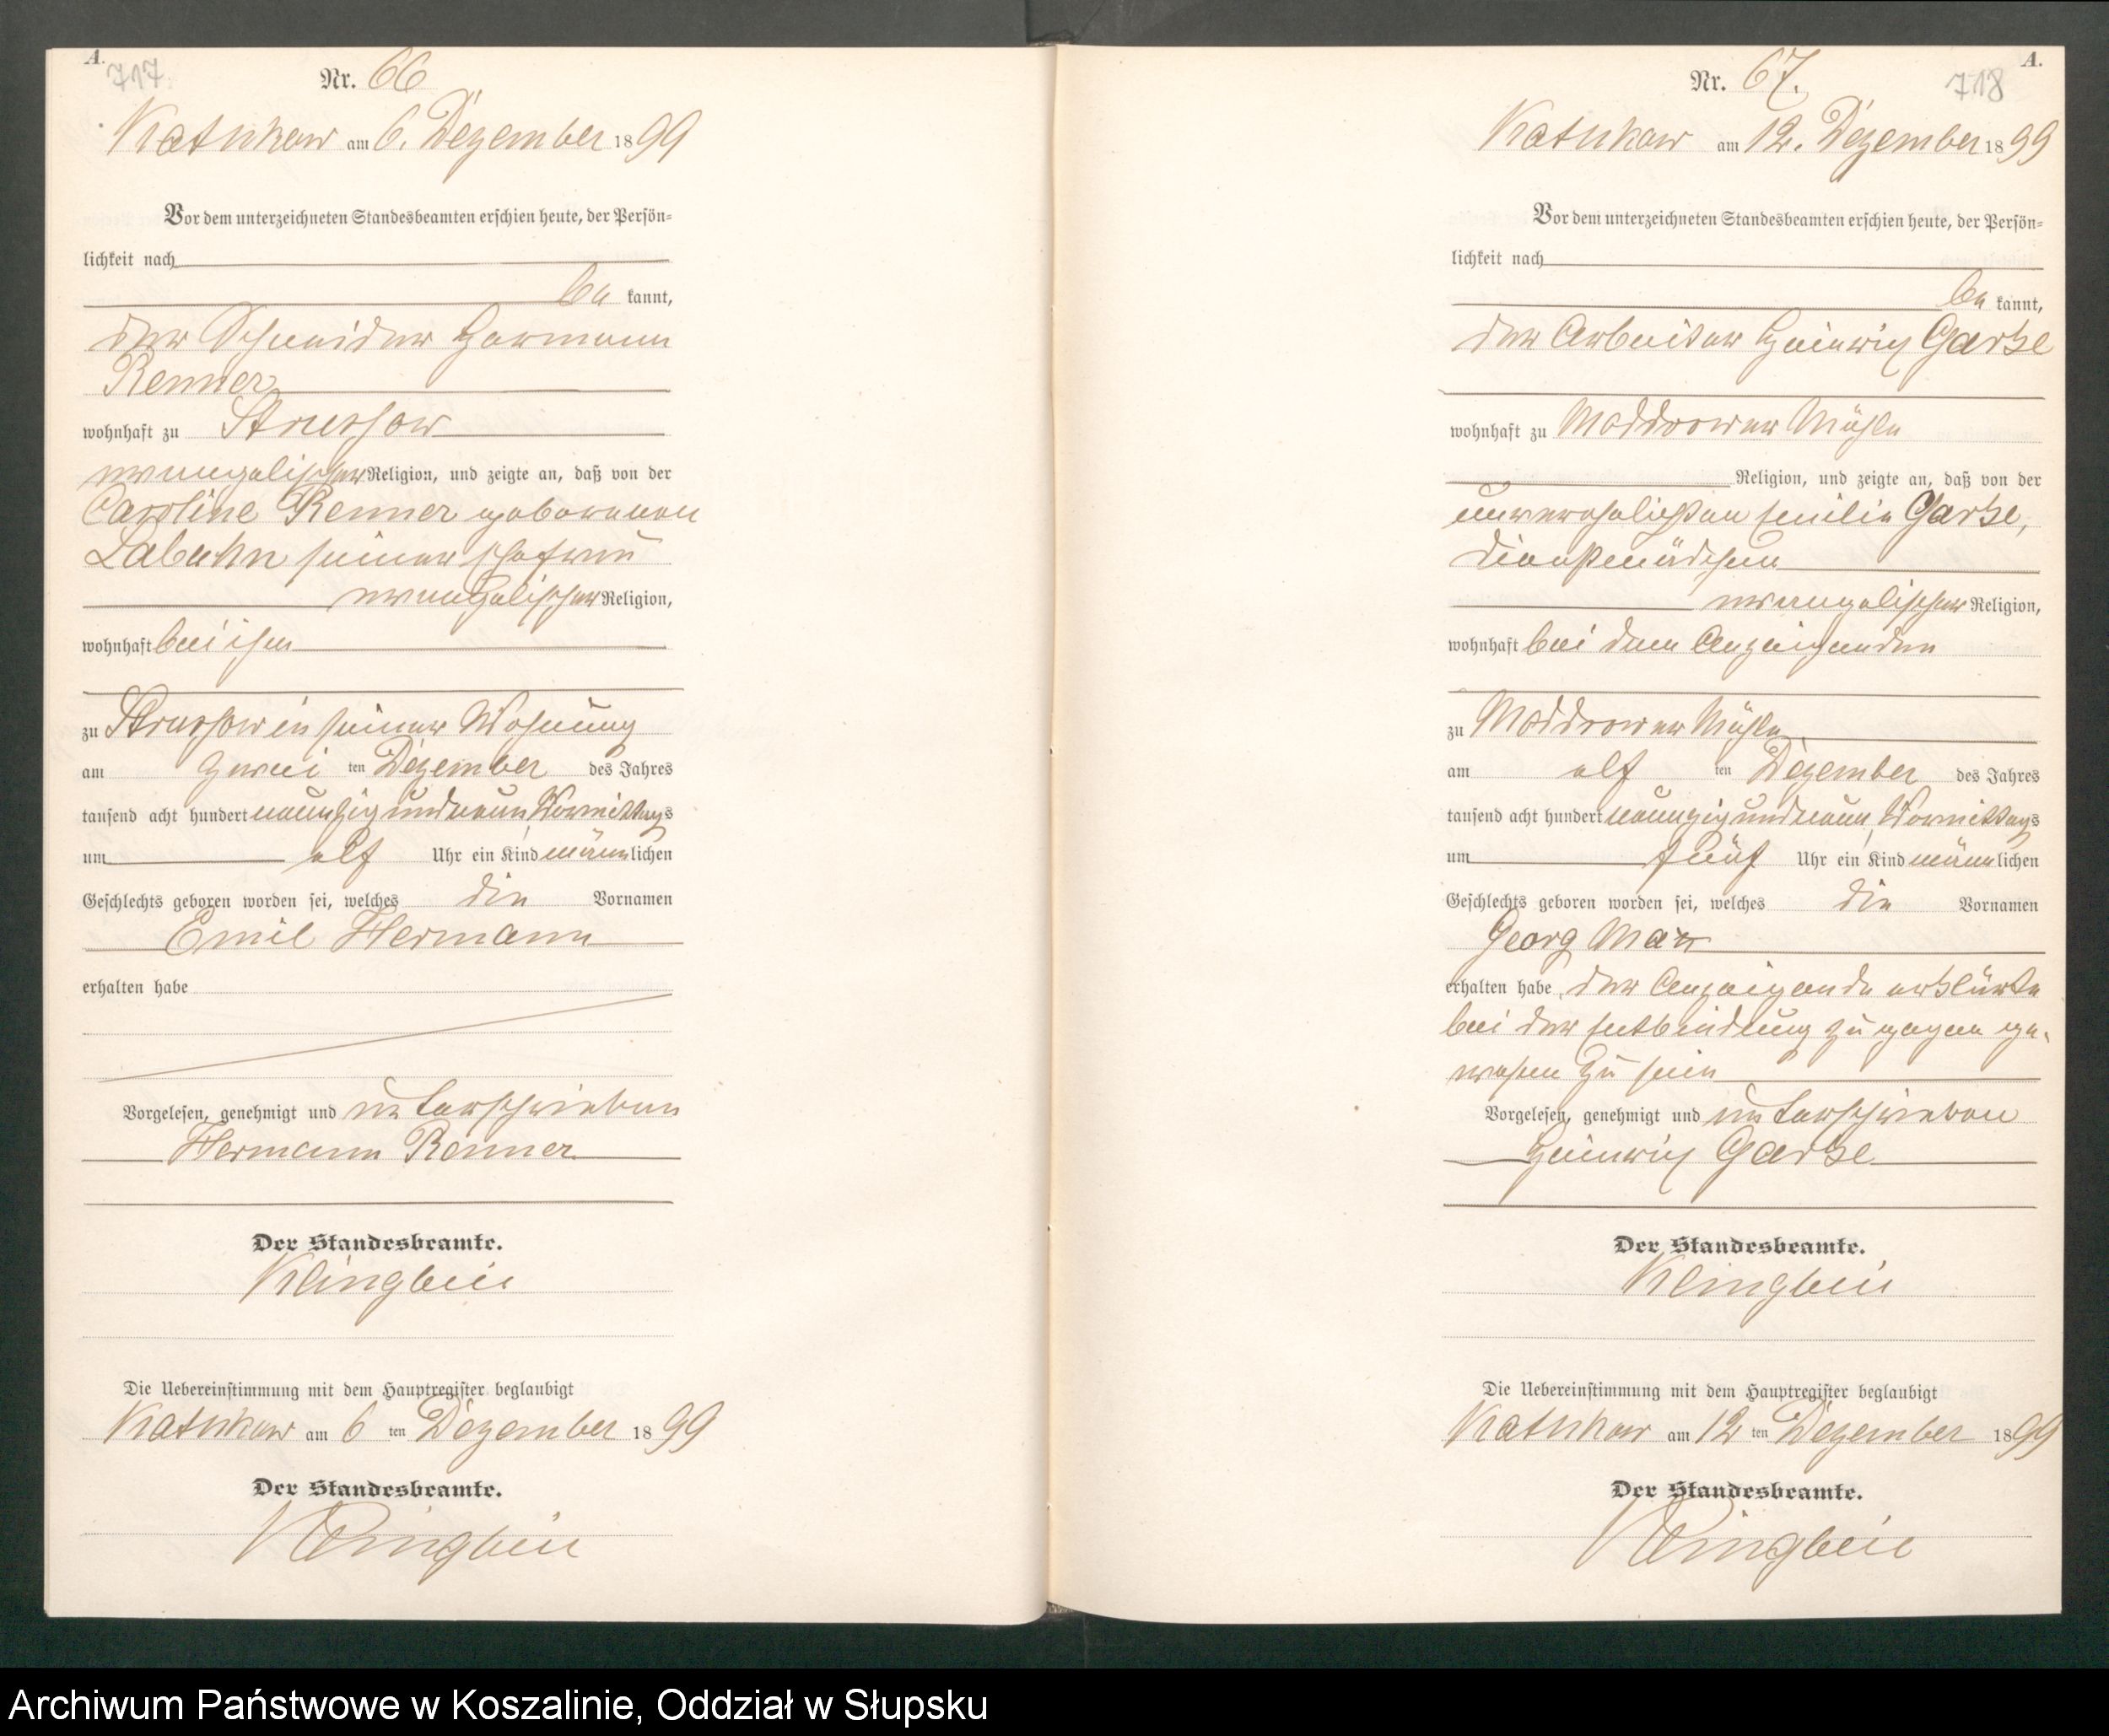 A.
717
Nr. 66
Katschow am 6. Dezember 1899
Vor dem unterzeichneten Standesbeamten erschien heute, der Persön-
lichkeit nach
be kannt,
der Schneider Hermann
Renner
wohnhaft zu Strussow
evangelischer Religion, und zeigte an, daß von der
Caroline Renner geborenen
Labuhn seiner Ehefrau
evangelischer Religion,
wohnhaft bei ihm
zu Strussow in seiner Wohnung
am zwei ten Dezember des Jahres
tausend acht hundert neunzig und neun, Vormittags
um elf Uhr ein Kind männlichen
Geschlechts geboren worden sei, welches die Vornamen
Emil Hermann
erhalten habe
Vorgelesen, genehmigt und unterschrieben
Hermann Renner
Der Standesbeamte.
Klingbeil
Die Uebereinstimmung mit dem Hauptregister beglaubigt
am 6 ten Dezember 1899
Der Standesbeamte.
Klingbeil
A.
718
Nr. 67.
am 12. Dezember 1899
Vor dem unterzeichneten Standesbeamten erschien heute, der Persön-
lichkeit nach
be kannt,
der Arbeiter Heinrich Garske
wohnhaft zu Moddrower Mühle
Religion, und zeigte an, daß von der
unverehelichten Emilie Garske,
Dienstmädchen
evangelischer Religion,
wohnhaft bei dem Anzeigenden
zu Moddrower Mühle
am elf ten Dezember des Jahres
tausend acht hundert neunzig und neun, Vormittags
um fünf Uhr ein Kind männlichen
Geschlechts geboren worden sei, welches die Vornamen
Georg Max
erhalten habe, der Anzeigende erklärte
bei der Entbindung zugegen ge-
wesen zu sein
Vorgelesen, genehmigt und unterschrieben
Heinrich Garske
Der Standesbeamte.
Klingbeil
Die Uebereinstimmung mit dem Hauptregister beglaubigt
am 12 ten Dezember 1899
Der Standesbeamte.
Klingbeil
Archiwum Państwowe w Koszalinie, Oddział w Słupsku